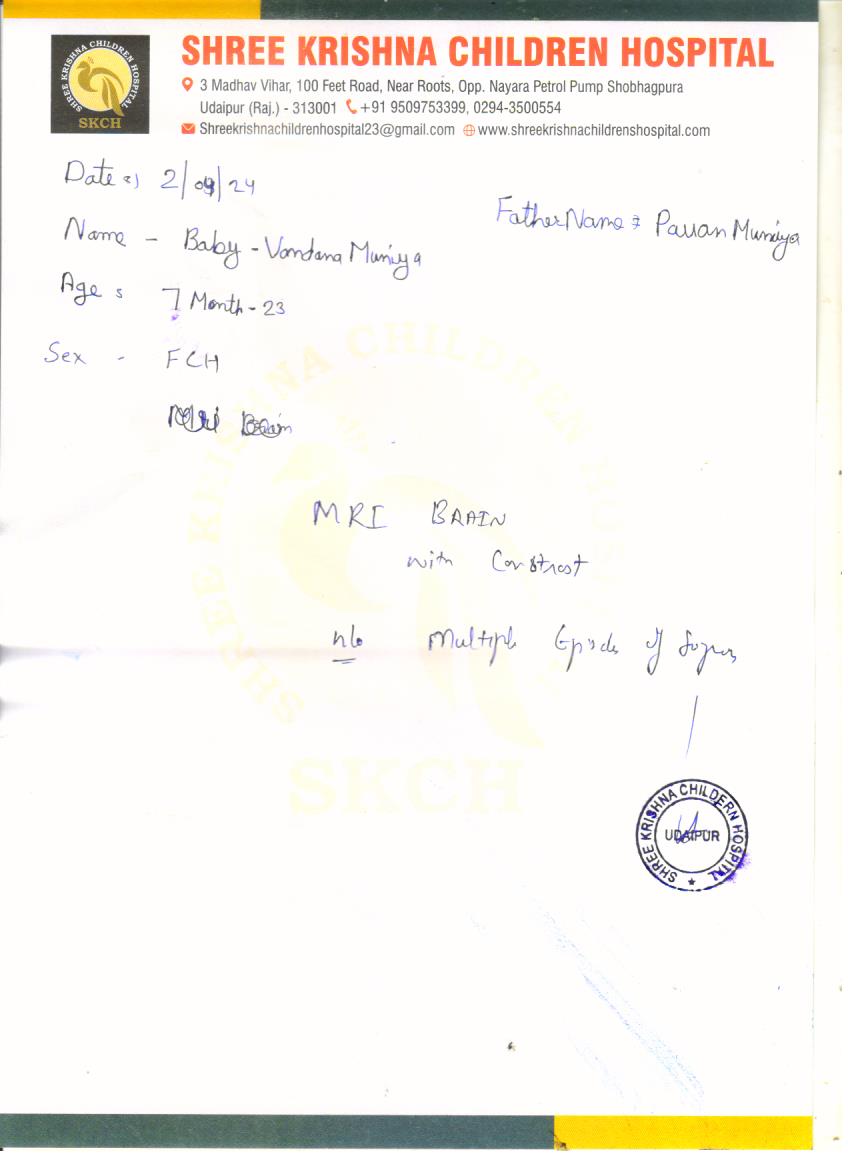 SHREE KRISHNA CHILDREN HOSPITAL
SHREE KRISHNA CHILDREN HOSPITAL
SKCH
3 Madhav Vihar, 100 Feet Road, Near Roots, Opp. Nayara Petrol Pump Shobhagpura
Udaipur (Raj.) - 313001 +91 9509753399, 0294-3500554
Shreekrishnachildrenhospital23@gmail.com www.shreekrishnachildrenshospital.com
Date 2/09/24
Father Name : Pavan Muniya
Name - Baby - Vandana Muniya
Age : 7 Month - 23
Sex - FCH
MRI BRAIN
with Contrast
h/o Multiple Episodes of
SHREE KRISHNA CHILDREN HOSPITAL
SKCH
SHREE KRISHNA CHILDERN HOSPITAL
UDAIPUR